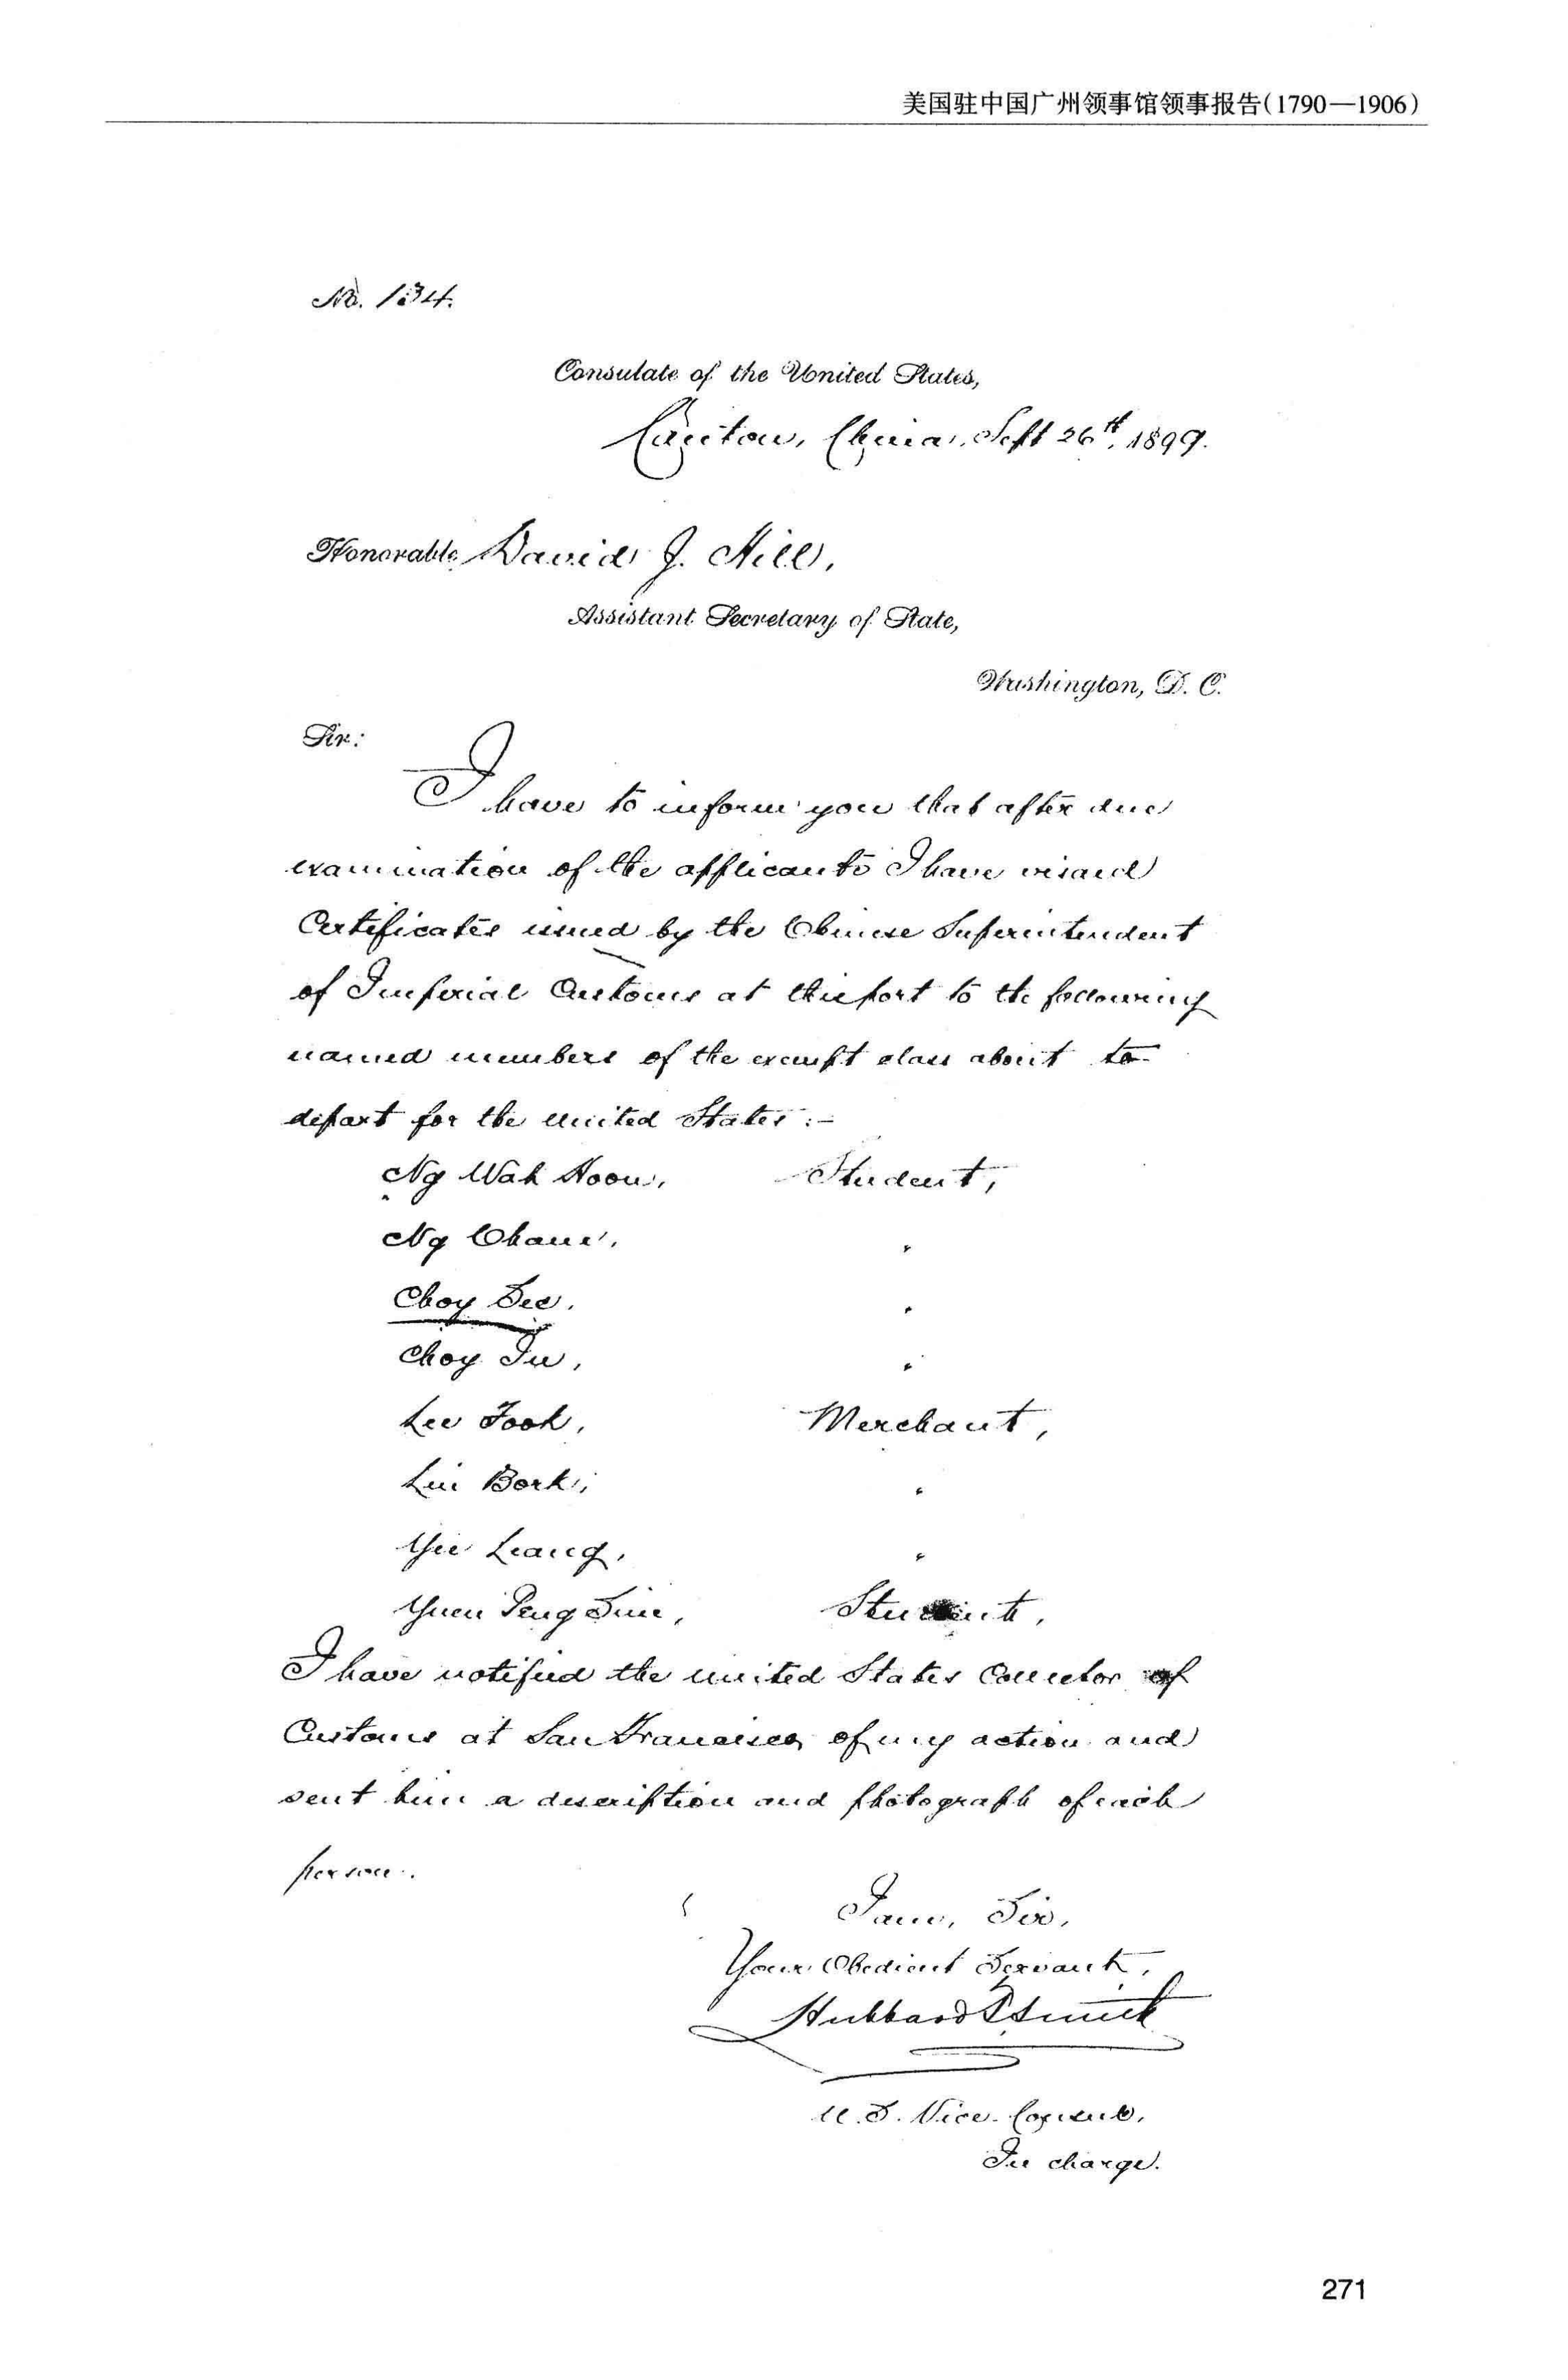 美国驻中国广州领事馆领事报告(1790—1906)
No. 134.
Consulate of the United States,
Canton, China, Sept 26th, 1899.
Honorable David J. Hill,
Assistant Secretary of State,
Washington, D. C.
Sir:
I have to inform you that after due
examination of the applicants I have visaed
Certificates issued by the Chinese Superintendent
of Imperial Customs at this port to the following
named members of the exempt class about to
depart for the United States:-
Ng Wah Hoon, Student,
Ng Chan, "
Choy See, "
Choy Su, "
Lee Fook, Merchant,
Lin Bork, "
Yee Leang, "
Yuen Peng Sun, Student,
I have notified the United States Collector of
Customs at San Francisco, of my action and
sent him a description and photograph of each
person.
I am, Sir,
Your Obedient Servant,
Hubbard T Smith
U.S. Vice-Consul,
In charge.
271